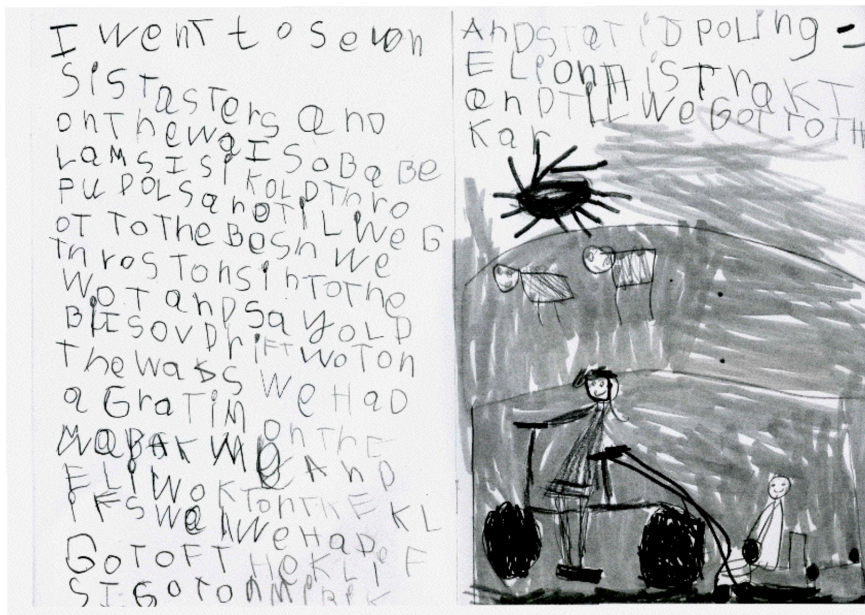 I went to sevon
SiSTasTers and
onThewaI SoBaBe
LamS I SiKOLDThro
PUDOLSandTiLWeG
OT TOThe BeSh We
ThroSTonSinToThe
WOT andSayOLD
BitSovDriFTWOTon
The WaBS We HaD
a GraTiM onThE
WaBaKWe AnD
ELiWOKTonThEKL
iFS WenWeHaDe
GOTOFTHEKLiF
SIGOTOn MiBiK
AnDSTaTiDPOLing
ELionAiSTraKT
anDTiLLWeGOTTOTh
Kar